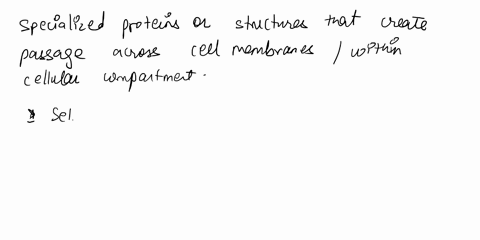 specialized proteins or structures that create
passage across cell membranes / within
cellular compartment.
* Sel.